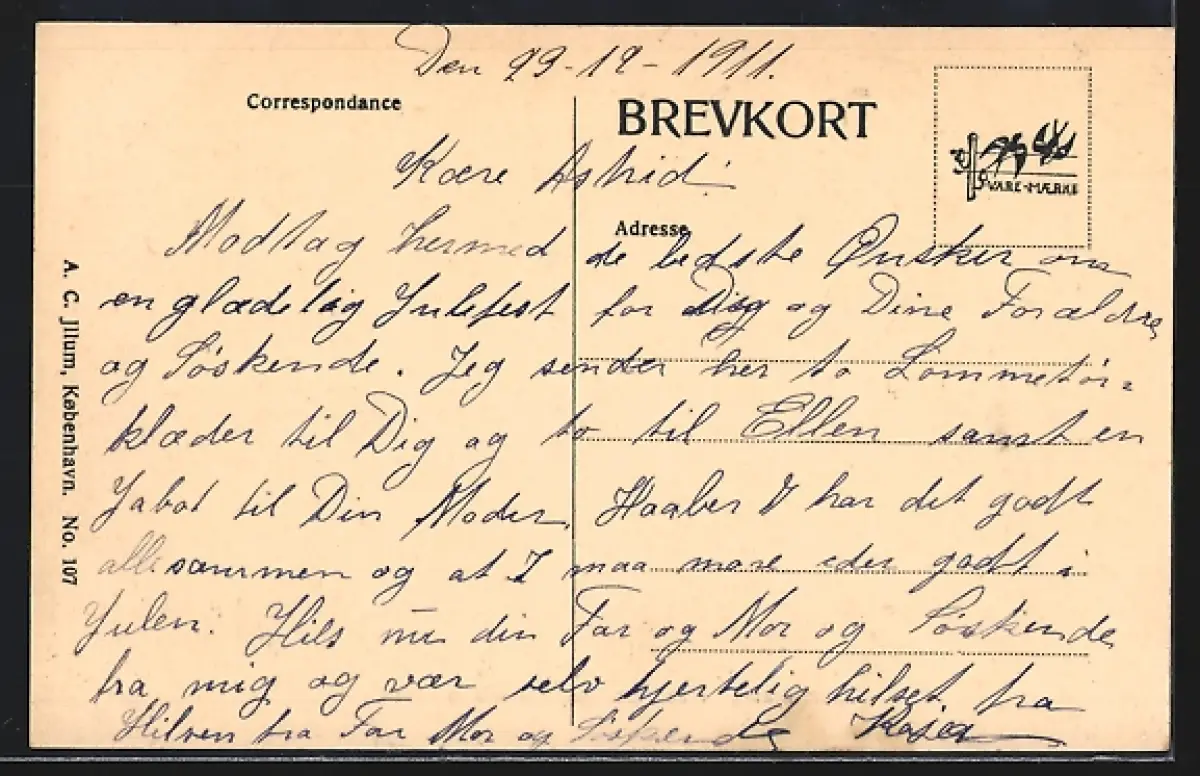 Den 22-12-1911.
Correspondance
BREVKORT
VARE-MÆRKE
Kære Astrid!
Adresse
Modtag hermed de bedste Ønsker om
en glædelig Julefest for Dig og Dine Forældre
og Søskende. Jeg sender her to Lommetør=
klæder til Dig og to til Ellen samt en
Jabot til Din Moder, Haaber I har det godt
allesammen og at I maa more eder godt i
Julen. Hils nu din Far og Mor og Søskende
fra mig og vær selv hjertelig hilset fra
Hilsen fra Far Mor og Søskende
A. C. Jllum, København. No. 107